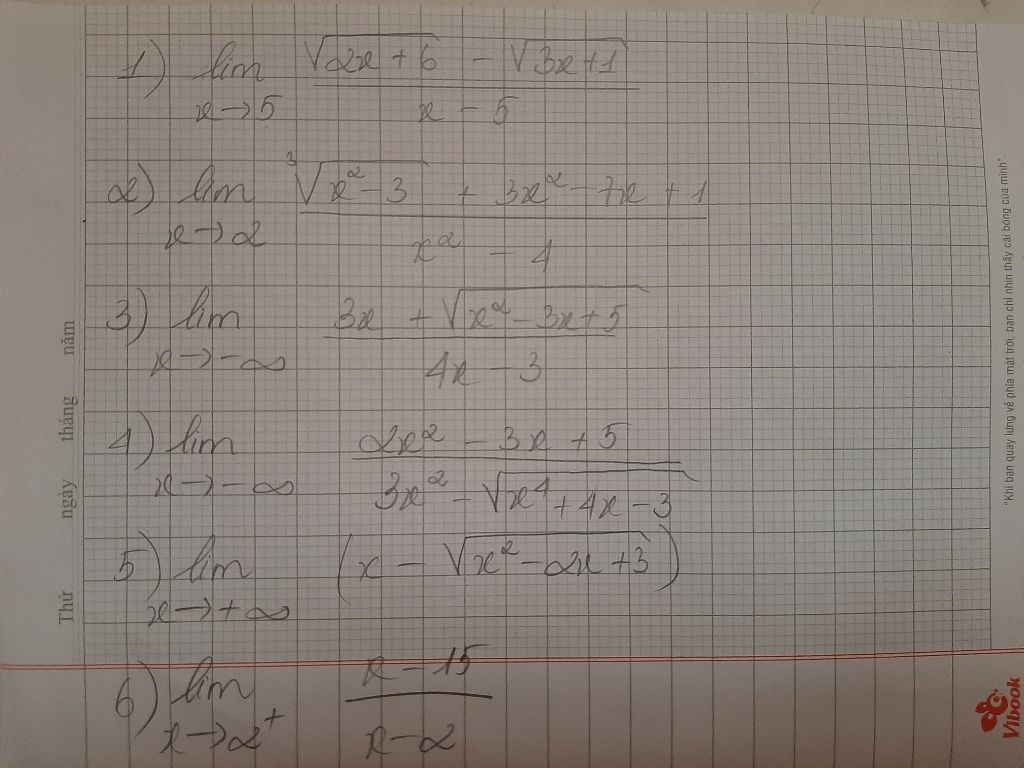 1) lim √(2x + 6) - √(3x+1)
x→5 x - 5
2) lim ³√(x² - 3) + 3x² - 7x + 1
x→2 x² - 4
3) lim 3x + √(x² - 3x + 5)
x→ -∞ 4x - 3
4) lim 2x² - 3x + 5
x→ -∞ 3x² - √(x⁴ + 4x - 3)
5) lim (x - √(x² - 2x + 3))
x→ +∞
6) lim x - 15
x→2⁺ x - 2
Thứ ngày tháng năm
"Khi bạn quay lưng về phía mặt trời, bạn chỉ nhìn thấy cái bóng của mình".
Vibook